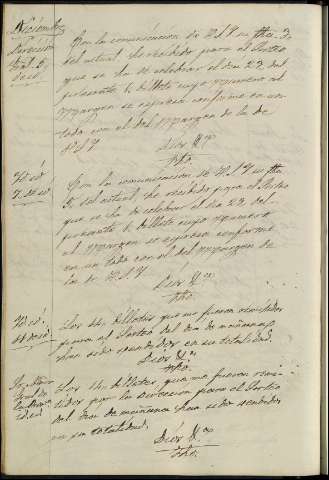 Diciembre
Dirección
Gral. 5,
de id.
Con la comunicacion de V.S.Y. su fha. 3,
del actual, he recibido para el Sorteo
que se ha de celebrar el dia 22 del
presente 6 billetes cuyo numero al
margen se expresa conforme en un
todo con el del margen de la de
V.S.Y.
Dios &.ª
fho.
Yd. id.
7, de id.
Con la comunicacion de V.S.Y. su fha.
5, del actual, he recibido para el Sorteo
que se ha de celebrar el dia 22 del
presente 6 billetes cuyo numero
al margen se expresa conforme
en un todo con el del margen de
la de V.S.Y.
Dios &.ª
fho.
Yd. id.
Los 44, billetes que me fueron remitidos
para el Sorteo del dia de mañana
han sido espendidos en su totalidad.
Dios &.ª
fho.
Los 14, billetes, que me fueron remi-
tidos por la direccion para el Sorteo
del dia de mañana han sido vendidos
en su totalidad.
Dios &.ª
fho.